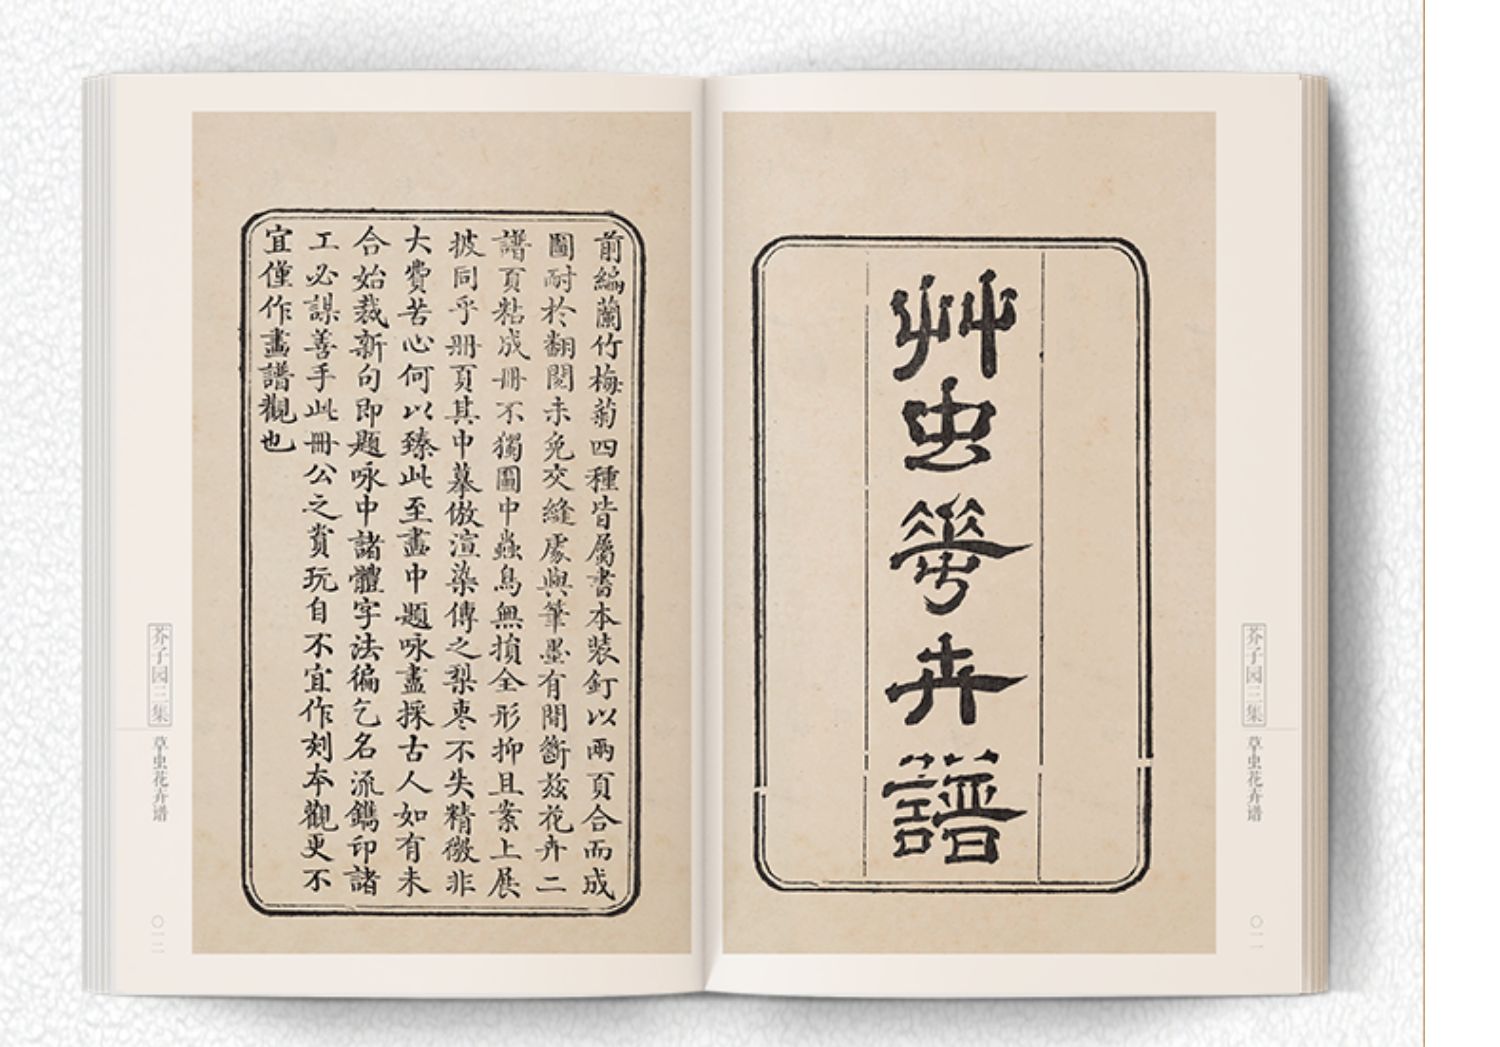 艸虫花卉譜
芥子园三集
草虫花卉谱
〇一一
前編蘭竹梅菊四種皆屬書本裝釘以兩頁合而成
圖耐於翻閱未免交縫處與筆墨有間斷茲花卉二
譜頁粘成冊不獨圖中蟲鳥無損全形抑且案上展
披同乎冊頁其中摹倣渲染傳之梨棗不失精微非
大費苦心何以臻此至畫中題咏盡採古人如有未
合始裁新句即題咏中諸體字法徧乞名流鐫印諸
工必謀善手此冊公之賞玩自不宜作刻本觀更不
宜僅作畫譜觀也
芥子园三集
草虫花卉谱
〇一二